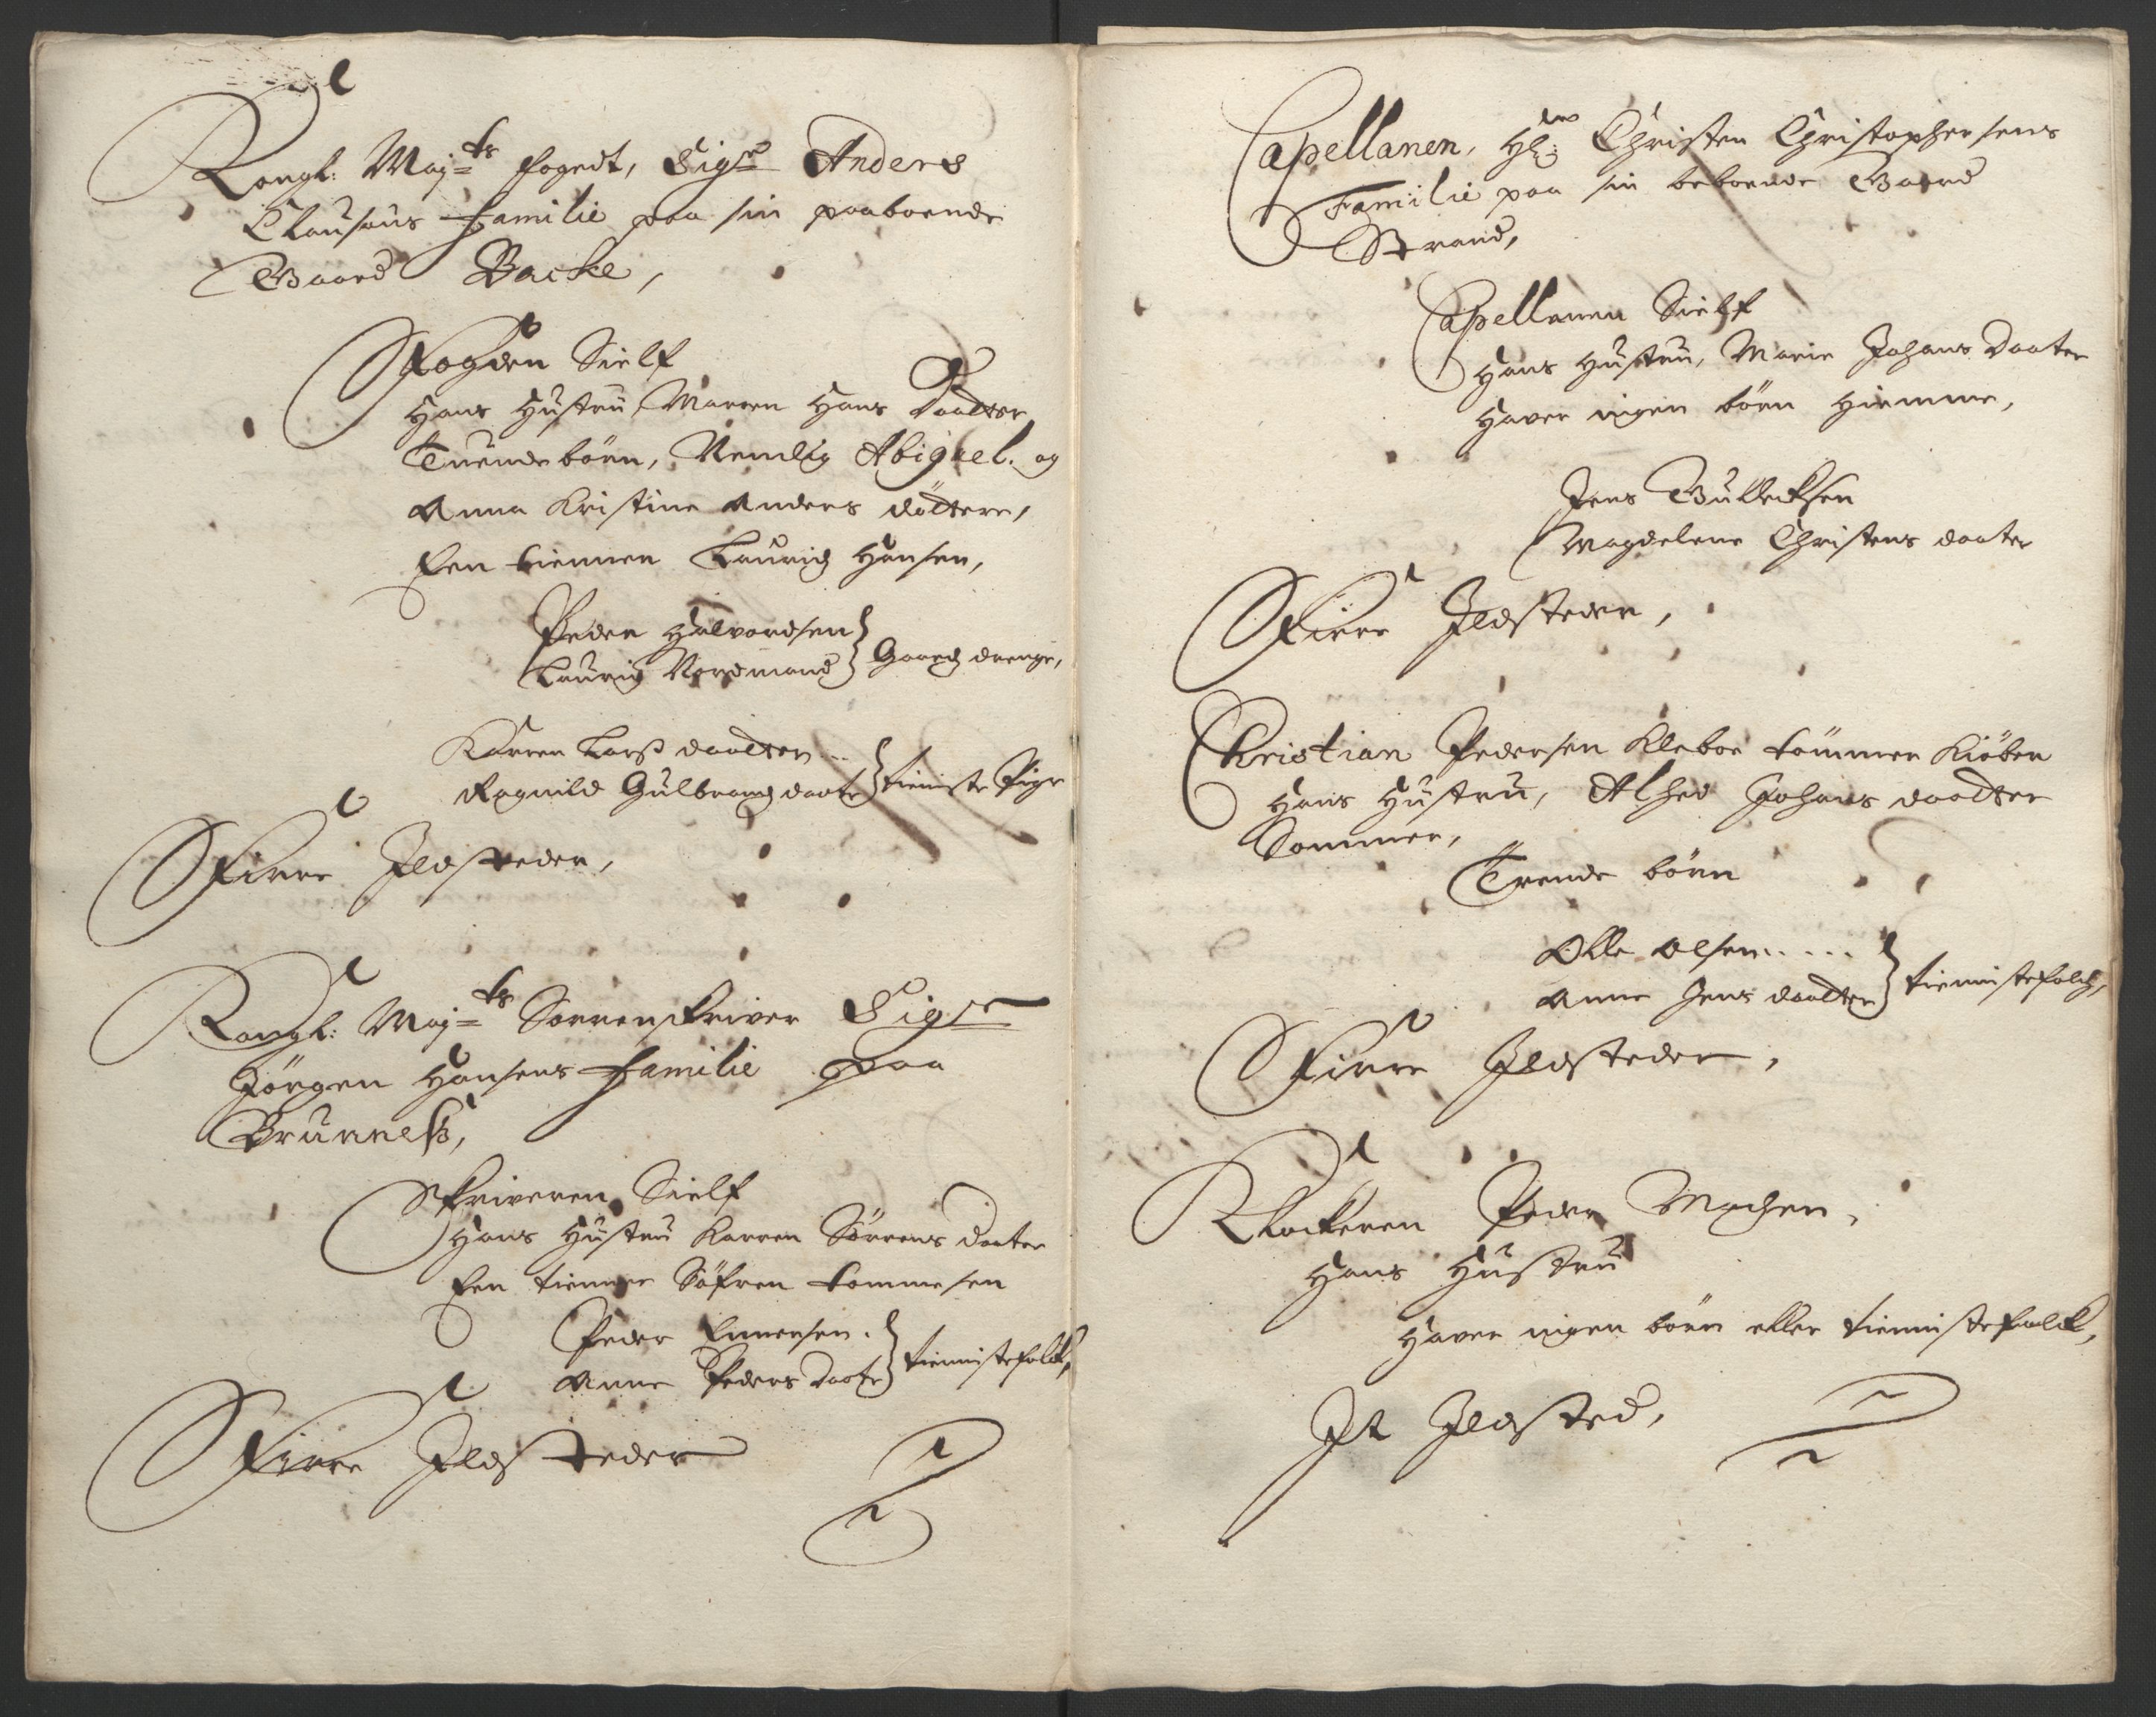 Kongl: Maj=ts fogedt, Sigr Anders
Clausøns Familie paa sin paaboende
Gaard Backe,
Fogden Sielf
Hans Hustru Marren Hans Daatter
Tuende börn, Nemlig Abigael og
Anna Kristine Anders döttere,
Een tienner Lauridz Hansen,
Peder Halvordsen
Lauridz Nordmand } Gaardz drenge,
Karren Larss daatter ...
Ragnild Gulbrandz daater } tieniste Pige
Fiire Ildsteder,
Kongl: Maj=ts Sorrenskriver Sigr
Jörgen Hansens Familie paa
Brunnelss,
Skriveren Sielf
Hans Hustru Karren Sörrens daater
Een tienner Söfren Tommesen
Peder Enersen.
Anne Peders daater } tiennistefolck,
Fiire Ildsteder
Capellanen, Hr: Christen Christophersens
Familie paa sin beboende Gaard
Strand,
Capellanen Sielf
Hans Hustru, Marie Johans Daater
Haver ingen börn hiemme,
Jens Gulleksen
Magdelene Christens daater
Fiire Ildsteder,
Christian Pedersen Kleboe tömmer Kiöber
Hans Hustru, Alhed Johans daatter
Sommer,
Trende börn
Olle Olsen.....
Anne Jens daatter } tiennistefolch,
Fiire Ildsteder,
Klockeren Peder Madzen,
Hans Hustru
Haver ingen börn eller tiennistefolck,
It Ildsted,